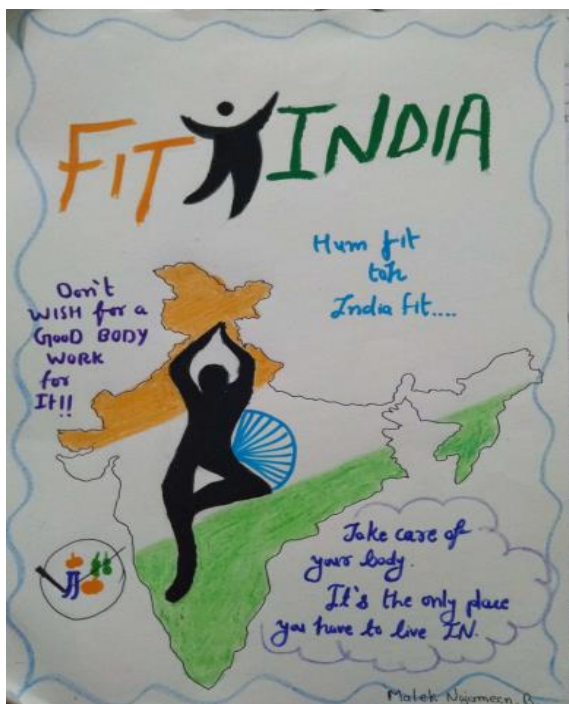 FIT INDIA
Hum fit
toh
India fit....
Don't
WISH for a
GOOD BODY
WORK
for
It!!
Take care of
your body.
It's the only place
you have to live IN.
Malek